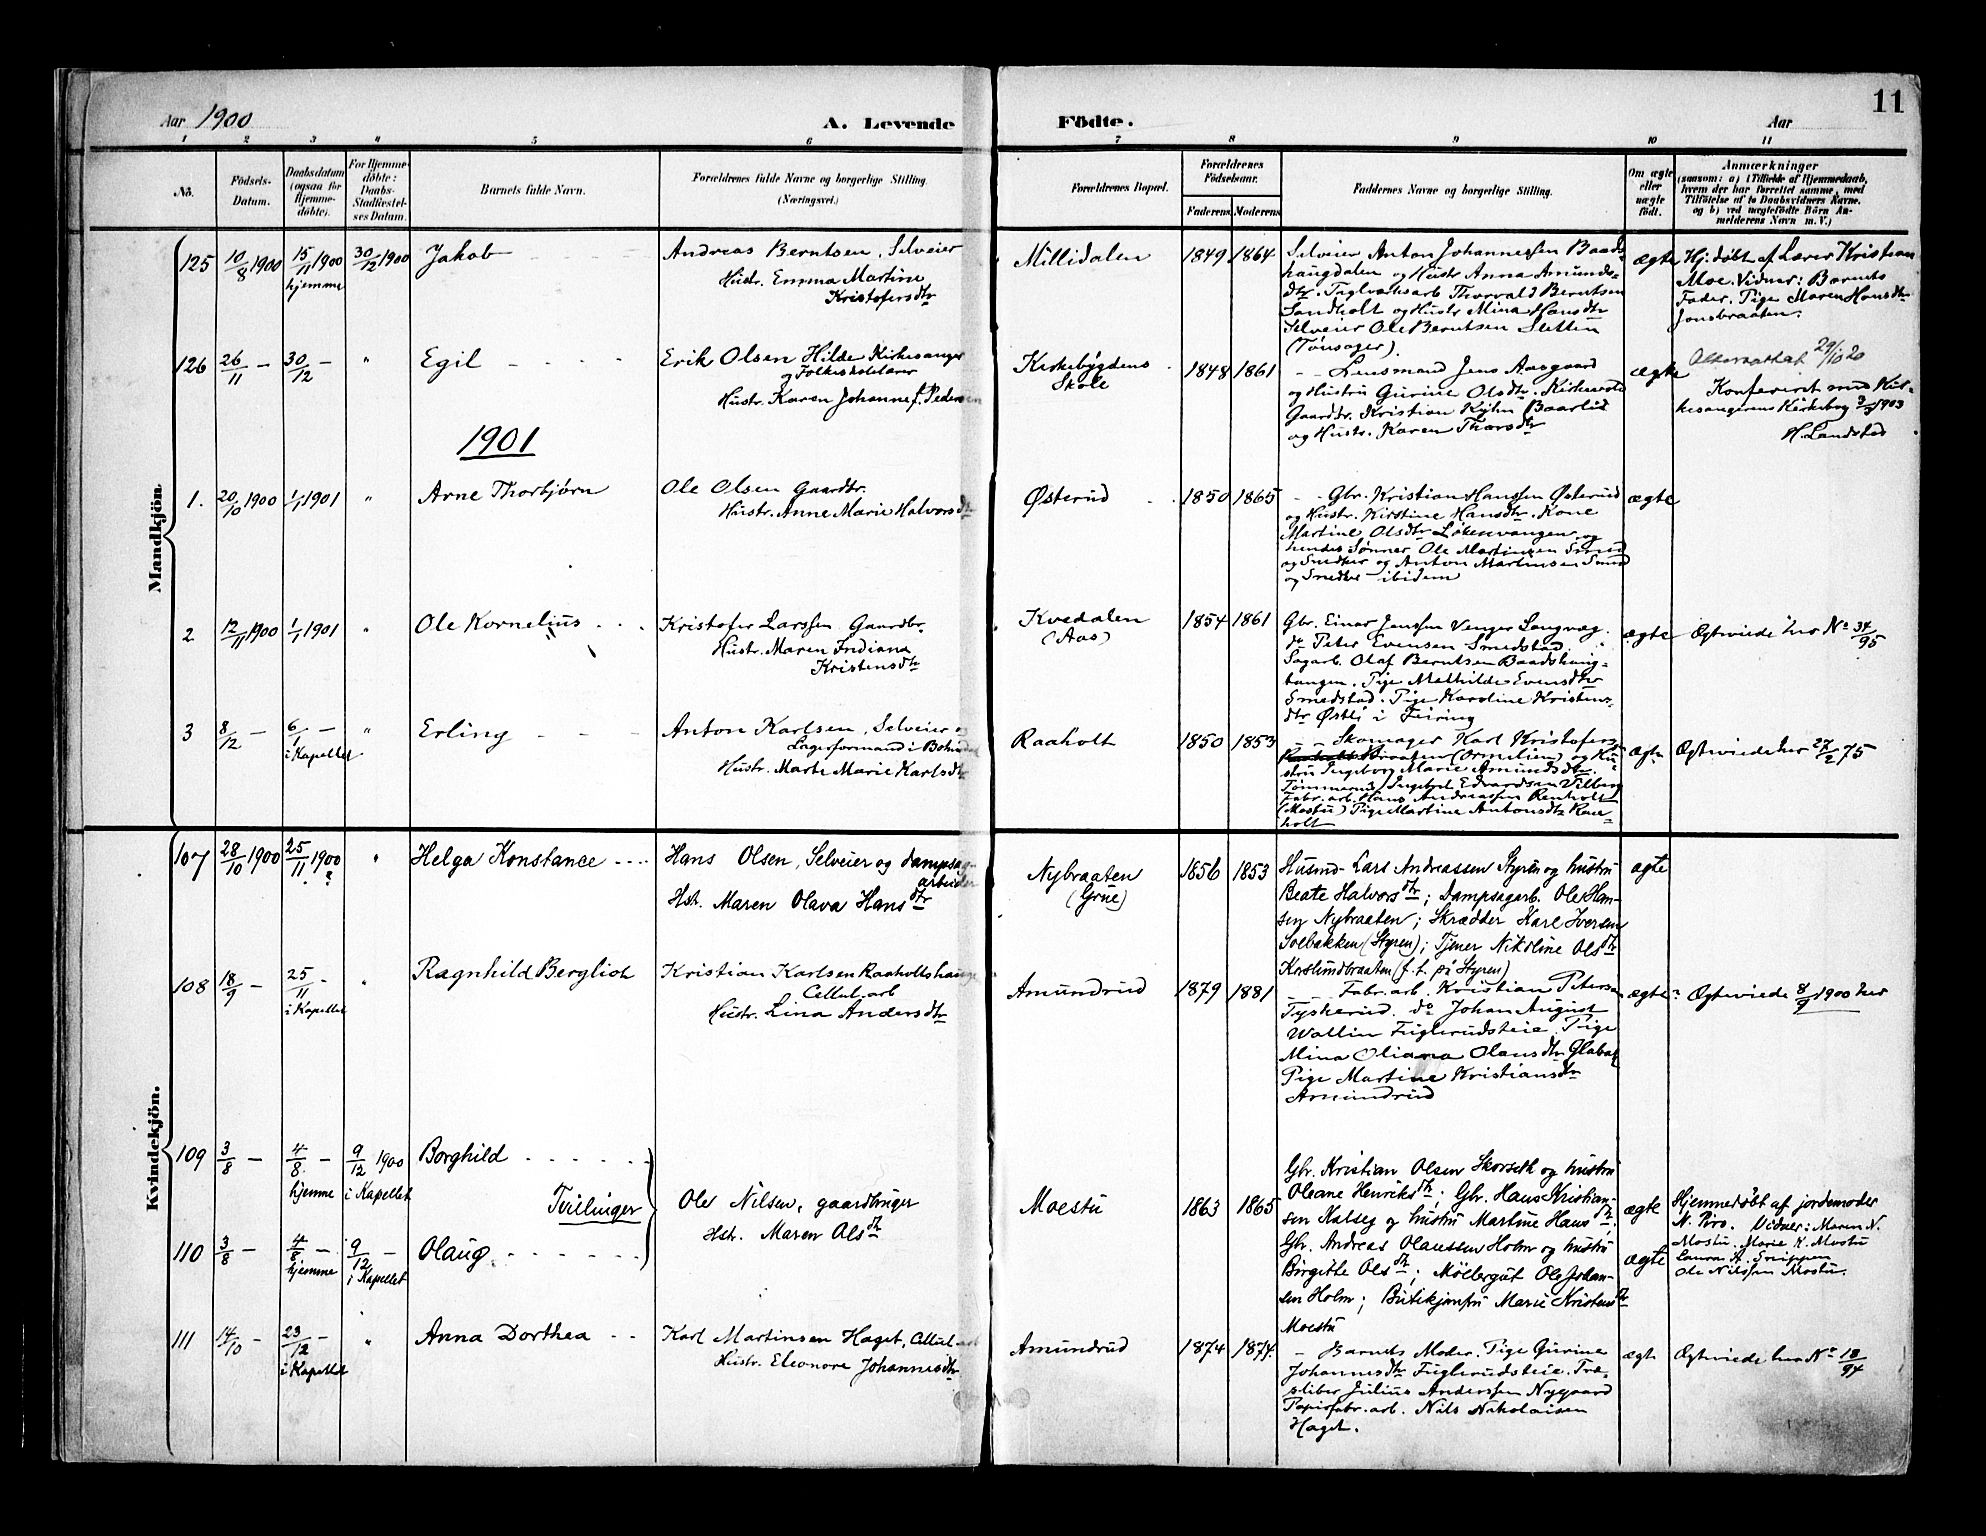 11
Aar 1900
A. Levende
Födte.
Aar
1 2 3 " 5 6 7 8 9 10 11
No.
Födsels-
Datum.
Daabsdatum
(ogsaa for
Hjemme-
döbte).
For Hjemme-
döbte:
Daabs-
Stadfæstel-
ses Datum.
Barnets fulde Navn.
Forældrenes fulde Navne og borgerlige Stilling.
(Næringsvei.)
Forældrenes Bopæl.
Forældrenes
Födselsaar.
Faderens Moderens
Faddernes Navne og borgerlige Stilling.
Om ægte
eller
uægte
födt.
Anmærkninger
(saasom: a) i Tilfælde af Hjemmedaab,
hvem der har forrettet samme, med
Tilföielse af to Daabsvidners Navne.
og b) ved uægtefödte Börn An-
melderens Navn m. V.)
Mandkjön.
125 10/8 1900 15/11 1900 hjemme 30/12 1900 Jakob
Andreas Berntsen, Selveier
Hustr. Emma Martine
Kristofersdtr
Millidalen 1849 1864
Selveier Anton Johannessen Baads-
haugdalen og Hustr Anna Amunds-
dtr. Teglverksarb Thorvald Berntsen
Sandholt og Hustr Mina Hansdtr
Selveier Ole Berntsen Sletten
(Tønsager).
ægte
Hj. døbt af Lærer Kristian
Moe. Vidner: Barnets
Fader. Pige Maren Hansdtr
Jonsbraaten.
126 26/11 – 30/12 – " Egil
Erik Olsen Hilde Kirkesanger
og Folkeskolelærer
Hustr. Karen Johanne f. Pedersen
Kirkebygdens
Skole
1848 1861
– – Lensmand Jens Aasgaard
og Hustru Gurine Olsdtr. Kirkeverge
Gaardbr. Kristian Kyhn Baarlid
og Hustr. Karen Thorsdtr
ægte
29/10 20
Konfereret med Kir-
kesangerens Kirkebog 3/3 1903
H. Landstad
1901
1. 20/10 1900 1/1 1901 " Arne Thorbjørn
Ole Olsen Gaardbr.
Hustr. Anne Marie Halvorsdtr
Østerud 1850 1865
– – Gbr. Kristian Hanssen Østerud
og Hustr. Kirstine Hansdtr. Kone
Martine Olsdtr Løkenvangen og
hendes Sønner Ole Martinsen Smed
og Snedker og Anton Martinsen Smed
og Snedker ibidem
ægte
2 12/11 1900 1/1 1901 " Ole Kornelius
Kristofer Larssen Gaardbr.
Hustr. Maren Indiana
Kristensdtr
Kvedalen
(Aas)
1854 1861
Gbr. Einar Janssen Venger Langvæg.
do Peter Evensen Smedstad.
Sagarb. Olaf Berntsen Baadshaug-
hangen. Pige Mathilde Evensdtr
Smedstad. Pige Karoline Kristens-
dtr Østli i Feiring
ægte
Ægteviede her No 34/95
3 8/12 – 6/1 – i Kapellet " Erling
Anton Karlsen, Selveier og
Lagerformand i Bohnsdal
Hustr. Marte Marie Karlsdtr
Raaholt 1850 1853
– – Skomager Karl Kristofers
Braaten (Ormelien) og Hu-
stru Ingeborg Marie Amundsdtr.
Tømmermd Ingebret Edvardsen Vilberg
Fabr. arb. Hans Andreassen Renholt
(Mostu) Pige Martine Antonsdtr Raa-
holt
ægte
Ægteviede her 27/2 75
Kvindekjön.
107 28/10 1900 25/11 1900 ? " Helga Konstance
Hans Olsen, Selveier og dampsag-
arbeider
Hst. Maren Olava Hansdtr
Nybraaten
(Grue)
1856 1853
Husmd Lars Andreassen Styren og hustru
Beate Halvorsdtr; Dampsagarb. Ole Han-
sen Nybraaten; Skrædder Karl Iversen
Solbakken (Styren); Tjener Nikoline Olsdtr
Korslundbraaten (f. t. på Styren)
ægte
108 18/9 – 25/11 – i Kapellet " Ragnhild Bergliot
Kristian Karlsen Raaholtshauge
Cellul. arb
Hustr. Lina Andersdtr
Amundrud 1879 1881
– – Fabr. arb. Kristian Peters
Tyskerud. do Johan August
Wallin Fuglerudsteie. Pige
Mina Oliana Olausdtr Glabak
Pige Martine Kristiansdtr
Amundrud
ægte
Ægteviede 8/9 1900 her
109 3/8 – 4/8 – hjemme 9/12 1900 i Kapellet Borghild
Tvillinger
110 3/8 – 4/8 – hjemme 9/12 – i Kapellet Olaug
Ole Nilsen, gaardbruger
Hst. Maren Olsdtr
Moestu 1863 1865
Gbr. Kristian Olsen Skorseth og hustru
Oleane Henriksdtr; Gbr. Hans Kristian-
sen Kalseg og hustru Martine Hansdtr;
Gbr. Andreas Olaussen Holm og hustru
Birgitte Olsdtr; Møllergut Ole Johan-
sen Holm; Butikjomfru Marie Kristensdtr
Moestu
ægte
ægte
Hjemmedøbt af jordemoder
N. Piro. Vidner: Maren N.
Mostu. Marie K. Mostu
Laura A. Snippen
Ole Nilssen Mostu.
111 14/10 – 23/12 – i Kapellet " Anna Dorthea
Karl Martinsen Haget, Cellul. arb
Hustr. Eleonore Johannesdtr
Amundrud 1874 1874.
– Barnets Moder. Pige Gurine
Johannesdtr Fuglerudsteie. Træ-
sliber Julius Anderssen Nygaard
Papirfabr. arb. Nils Nikolaisen
Haget.
ægte
Ægteviede her No 18/94